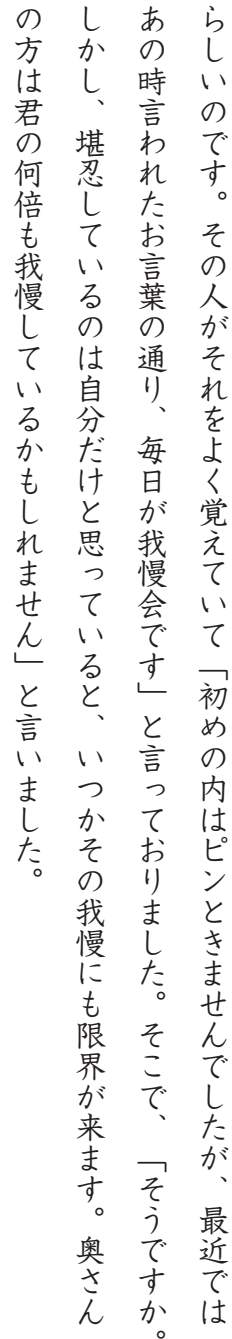 らしいのです。その人がそれをよく覚えていて「初めの内はピンときませんでしたが、最近では
あの時言われたお言葉の通り、毎日が我慢会です」と言っておりました。そこで、「そうですか。
しかし、堪忍しているのは自分だけと思っていると、いつかその我慢にも限界が来ます。奥さん
の方は君の何倍も我慢しているかもしれません」と言いました。